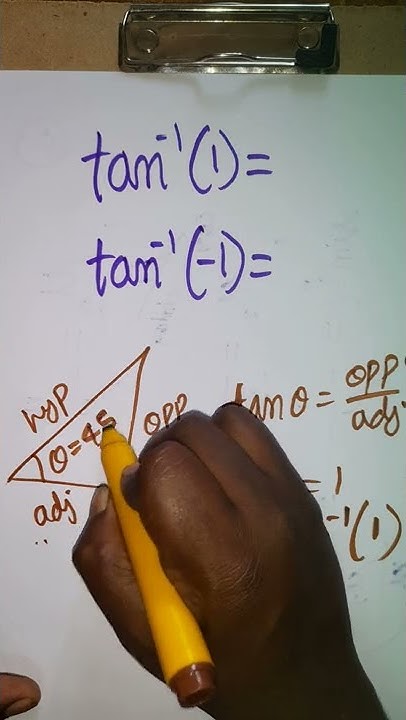 tan⁻¹(1)=
tan⁻¹(-1)=
hyp
opp
tan θ = opp/adj
θ=45
adj
= 1
⁻¹(1)